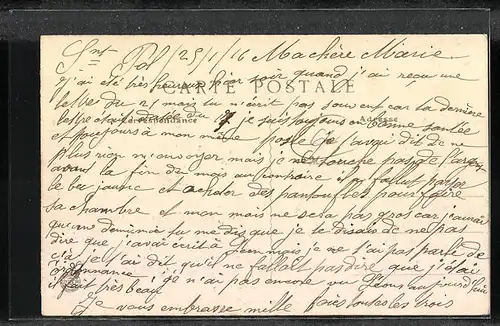 St Pol 25/1/16 Ma chère Marie
j'ai été très heureux hier soir quand j'ai reçu une
CARTE POSTALE
lettre du 21 mais tu n'écrit pas souvent car la dernière
Correspondance Adresse
lettre était du 17 je suis toujours en bonne santée
et toujours à mon même poste je t'avai dit de ne
plus rien m'envoyer mais je ne touche pas de
avant la fin du mois au contraire il a fallut
le bec jaune et acheter des pantoufles pour faire
la chambre et mon mois ne sera pas gros car j'aurai
qu'une tu me dis que je te disais de ne pas
dire que j'avai écrit à Léon mais je ne t'ai pas parlé de
ça je t'ai dit qu'il ne fallait pas dire que j'étai
ordonnance je n'ai pas encore vu Léon aujourd'hui
il fait très beau
Je vous embrasse mille fois toutes les trois